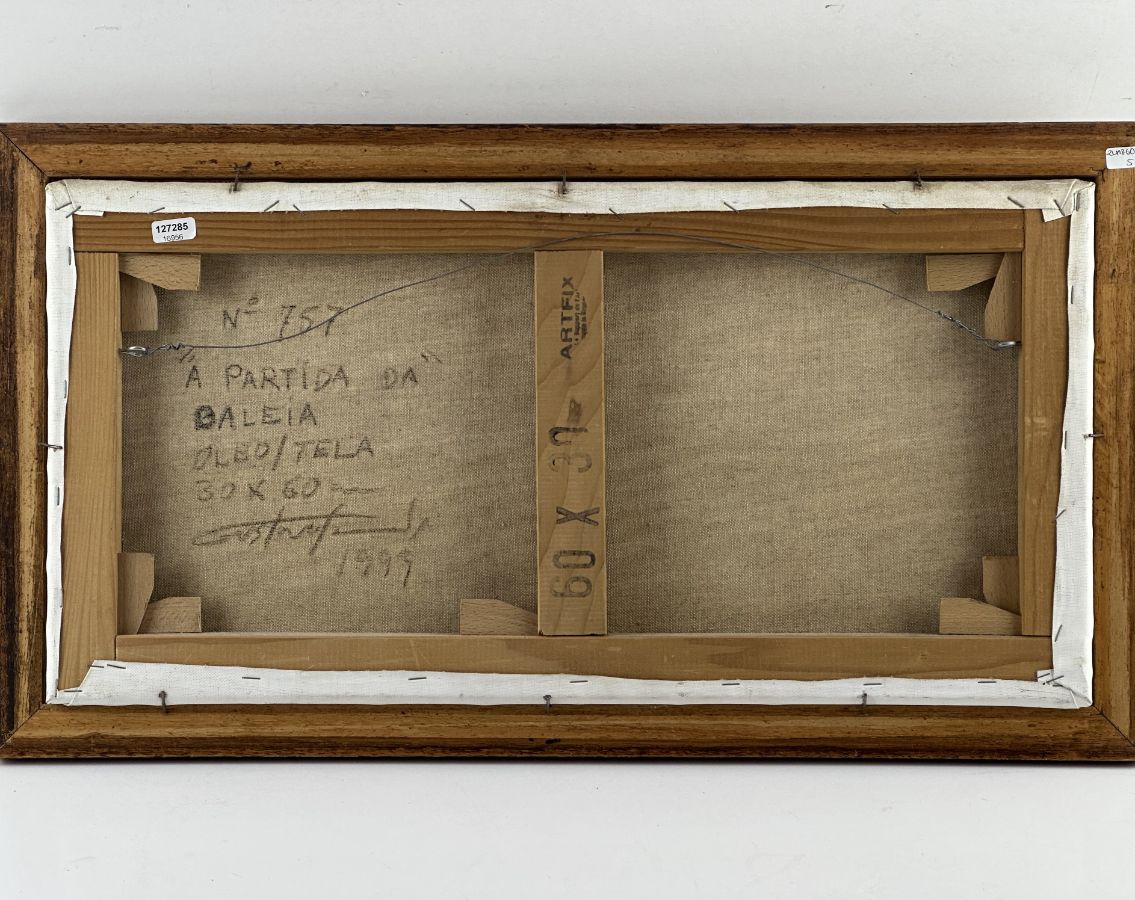 127285
16956
Nº 757
"A PARTIDA DA"
BALEIA
OLEO/TELA
30 X 60
1999
ARTFIX
60 X 30